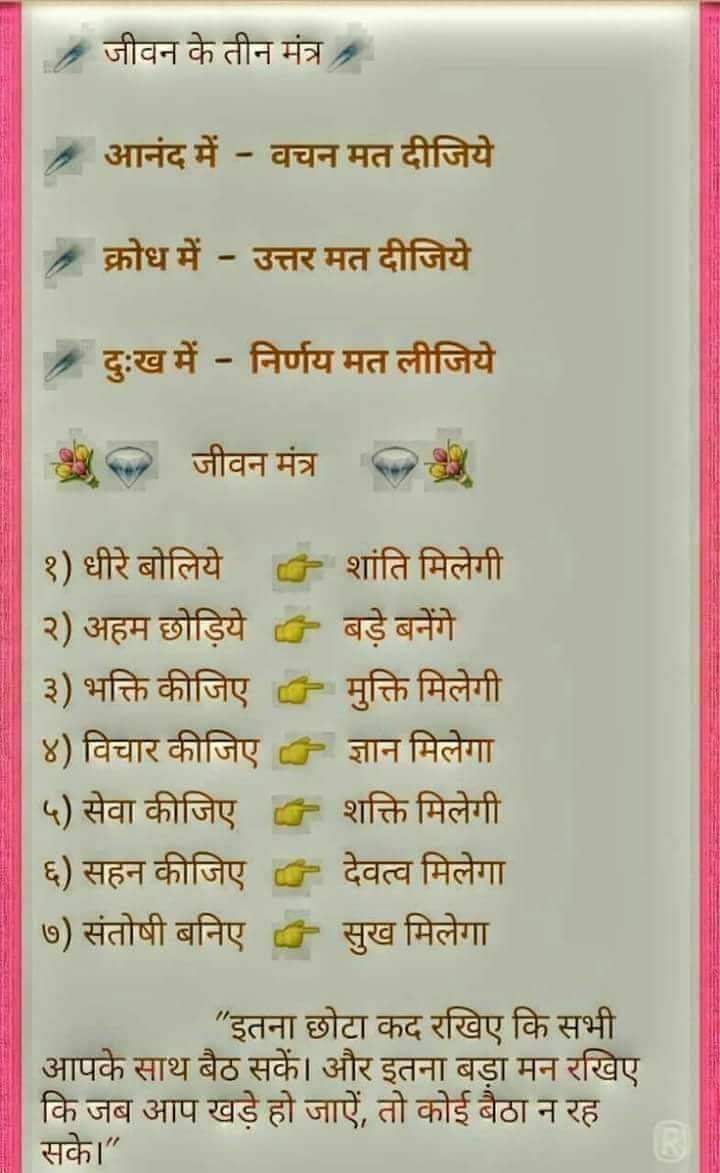 जीवन के तीन मंत्र
आनंद में - वचन मत दीजिये
क्रोध में - उत्तर मत दीजिये
दुःख में - निर्णय मत लीजिये
जीवन मंत्र
१) धीरे बोलिये 👉 शांति मिलेगी
२) अहम छोड़िये 👉 बड़े बनेंगे
३) भक्ति कीजिए 👉 मुक्ति मिलेगी
४) विचार कीजिए 👉 ज्ञान मिलेगा
५) सेवा कीजिए 👉 शक्ति मिलेगी
६) सहन कीजिए 👉 देवत्व मिलेगा
७) संतोषी बनिए 👉 सुख मिलेगा
"इतना छोटा कद रखिए कि सभी
आपके साथ बैठ सकें। और इतना बड़ा मन रखिए
कि जब आप खड़े हो जाऐं, तो कोई बैठा न रह
सके।"
R